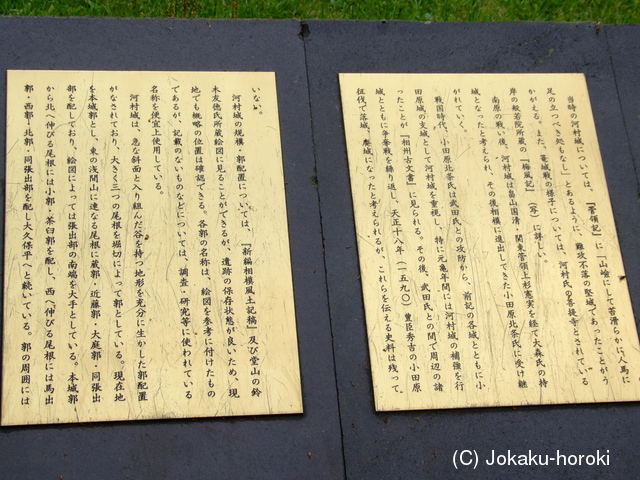 当時の河村城については、『管領記』に「山嶮にして苔滑らかに人馬に
足の立つべき処もなし」とあるように、難攻不落の堅城であったことがう
かがえる。また、篭城戦の様子については、河村氏の菩提寺とされている
岸の般若院所蔵の『梅風記』（写）に詳しい。
南原の戦い後、河村城は畠山国清・関東管領上杉憲実を経て大森氏の持
城となったと考えられ、その後相模に進出してきた小田原北条氏に受け継
がれていく。
戦国時代、小田原北条氏は武田氏との攻防から、前記の各城とともに小
田原城の支城として河村城を重視し、特に元亀年間には河村城の補強を行
ったことが『相州古文書』に見られる。その後、武田氏との間で周辺の諸
城とともに争奪戦を繰り返し、天正十八年（一五九〇）豊臣秀吉の小田原
征伐で落城、廃城になったと考えられるが、これらを伝える史料は残って
いない。
河村城の規模・郭配置については、『新編相模風土記稿』及び堂山の鈴
木友徳氏所蔵絵図に見ることができるが、遺跡の保存状態が良いため、現
地でも概略の位置は確認できる。各郭の名称は、絵図を参考に付けたもの
であるが、記載のないものなどについては、調査・研究等に使われている
名称を便宜上使用している。
河村城は、急な斜面と入り組んだ谷を持つ地形を充分に生かした郭配置
がなされており、大きく三つの尾根を堀切によって郭としている。現在地
を本城郭とし、東の浅間山に連なる尾根に蔵郭・近藤郭・大庭郭・同張出
部を配しており、絵図によっては張出部の南端を大手としている。本城郭
から北へ伸びる尾根には小郭・茶臼郭を配し、西へ伸びる尾根には馬出
郭・西郭・北郭・同張出部を配し大久保平へと続いている。郭の周囲には
(C) Jokaku-horoki